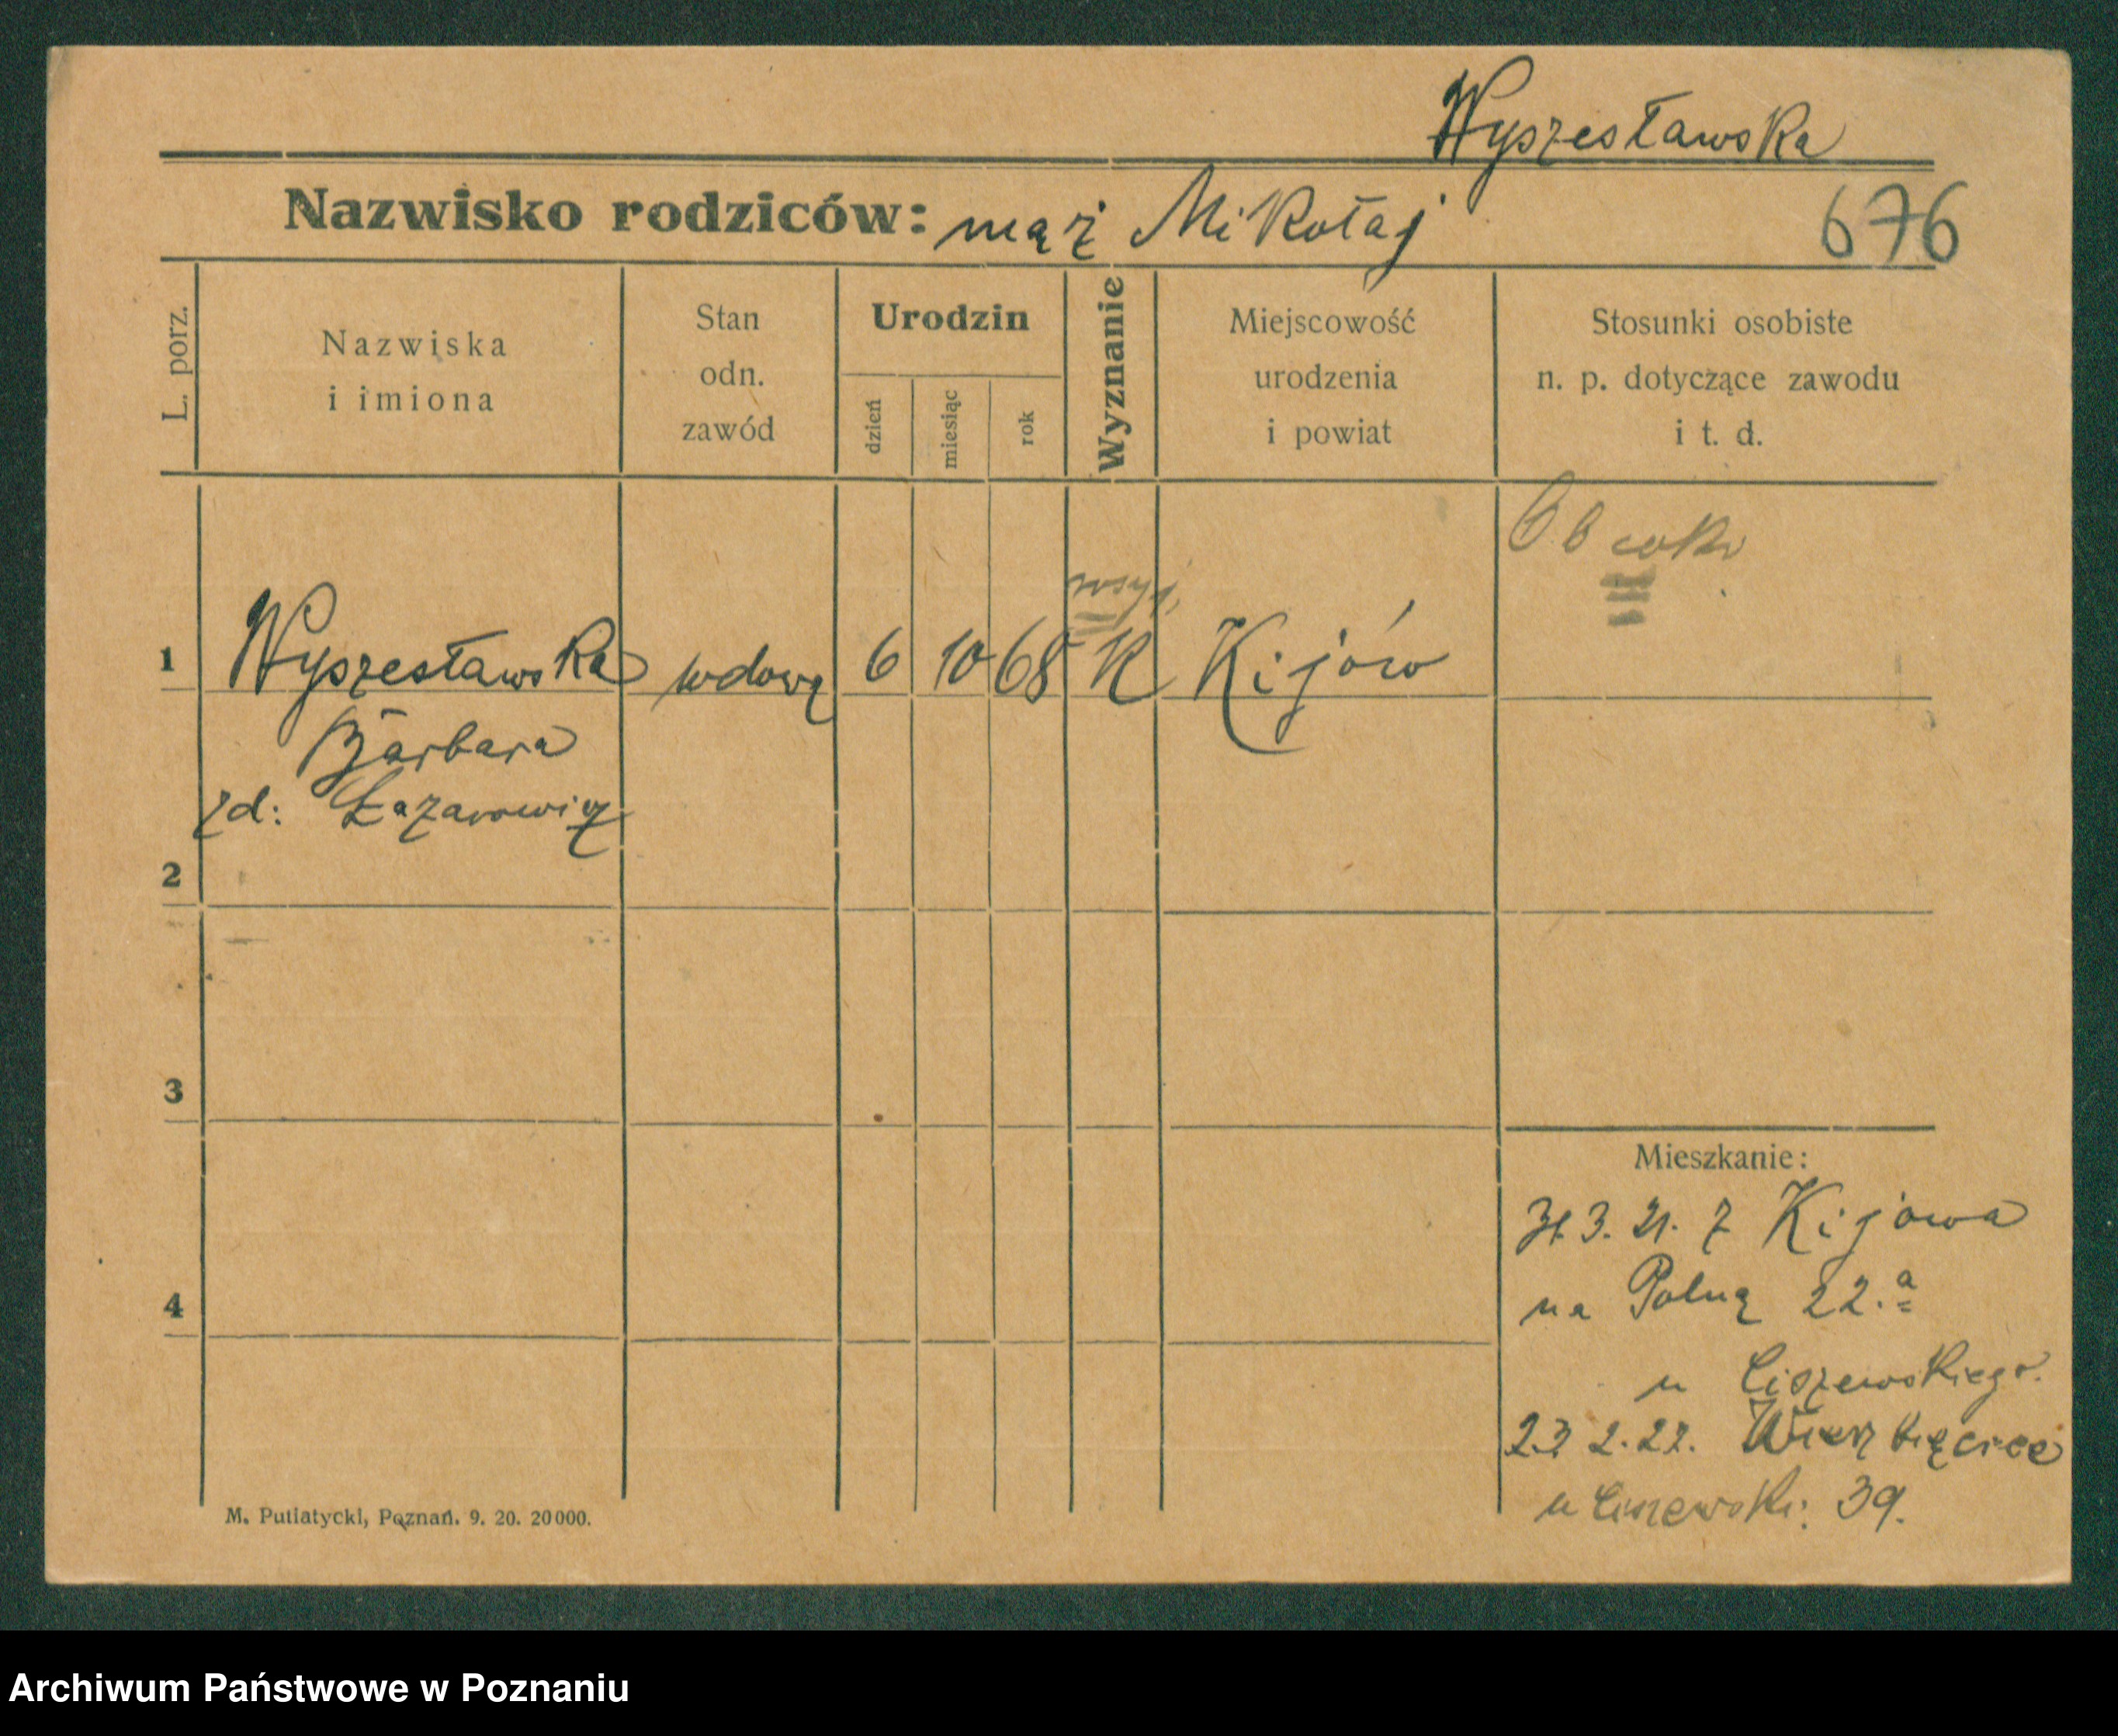 Wyszesławska
Nazwisko rodziców: mąż Mikołaj 676
L. porz.
Nazwiska
i imiona
Stan
odn.
zawód
Urodzin
dzień
miesiąc
rok
Wyznanie
Miejscowość
urodzenia
i powiat
Stosunki osobiste
n. p. dotyczące zawodu
i t. d.
1 Wyszesławska wdowa 6 10 68 K Kijów
Barbara
zd: Łazarowicz
2
3
4
Mieszkanie:
31. 3. 21. z Kijowa
na Polną 22.a
u Ciszewskiego.
23 2. 22. Wierzbięcice
u Ciszewski: 39.
M. Putiatycki, Poznań. 9. 20. 20000.
Archiwum Państwowe w Poznaniu